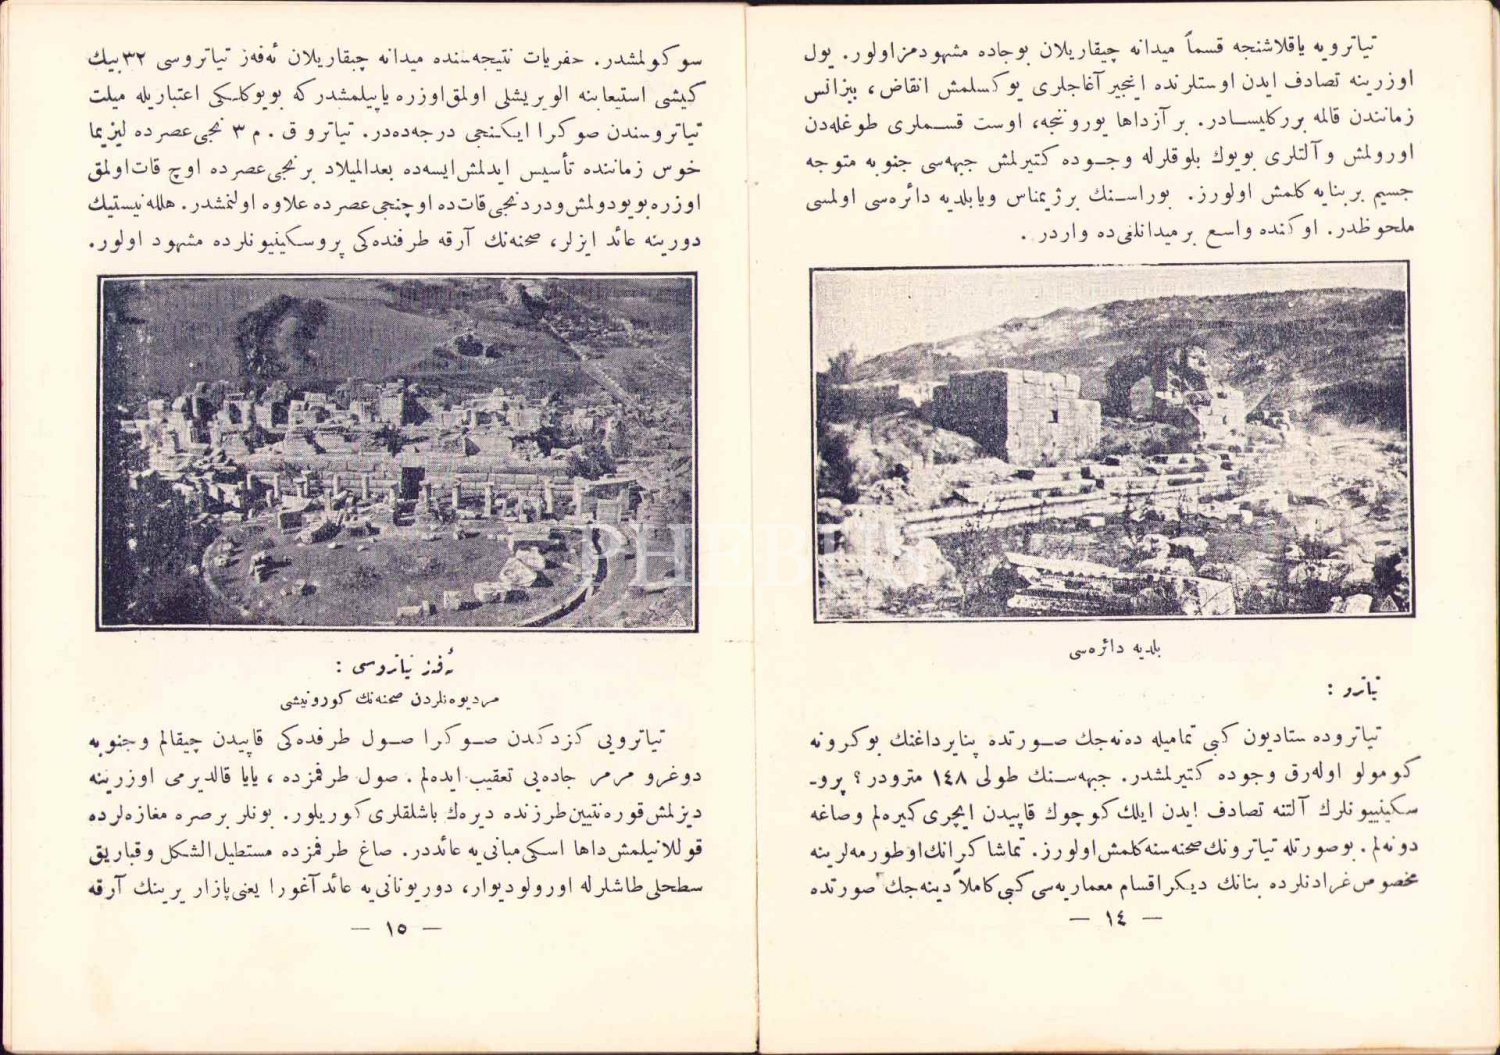 تیاترویه یاقلاشنجه قسماً میدانه چیقاریلان بوجاده مشهودمز اولور. یول
اوزرینه تصادف ایدن اوستلرنده اینجیر آغاجلری یوکسلمش انقاض، بیزانس
زمانندن قالمه بررکلیسادر. بر آزداها یوروننجه، اوست قسملری طوغله‌دن
اورولمش و آلتلری بویوك بلوقلرله وجوده کتیرلمش جبهه‌سی جنوبه متوجه
جسیم بر بنایه کلمش اولورز. بوراسنك بر ژیمناس ویا بلدیه دائره‌سی اولمسی
ملحوظدر. اوکنده واسع بر میدانلغی‌ده واردر.
بلدیه دائره‌سی
تیاترو :
تیاتروده ستادیون کبی تمامیله ده‌نه‌جك صورتده پنایرداغنك بوکرونه
کومولو اوله‌رق وجوده کتیرلمشدر. جبهه‌سنك طولی ١٤٨ مترودر؟ پرو-
سکینییونلرك آلتنه تصادف ایدن ایلك کوچوك قاپیدن ایچری کیره‌لم وصاغه
دونه‌لم. بوصورتله تیاترونك صحنه‌سنه کلمش اولورز. تماشاکرانك اوطورمه‌لرینه
مخصوص غرادنلرده بنانك دیکر اقسام معماریه‌سی کبی کاملاً دینه‌جك صورتده
— ١٤ —
سوکولمشدر. حفریات نتیجه‌سنده میدانه چیقاریلان ئه‌فه‌ز تیاتروسی ٣٢ بیك
کیشی استیعابنه الویریشلی اولمق اوزره یاپیلمشدرکه بویوکلکی اعتباریله میلت
تیاتروسندن صوکرا ایکنجی درجه‌ده‌در. تیاترو ق . م ٣ نجی عصرده لیزیما
خوس زماننده تأسیس ایدلمش ایسه‌ده بعدالمیلاد برنجی عصرده اوچ قات اولمق
اوزره بویودولمش ودردنجی قات‌ده اوچنجی عصرده علاوه اولنمشدر. هلله‌نیستیك
دورینه عائد ایزلر، صحنه‌نك آرقه طرفنده‌کی پروسکینیونلرده مشهود اولور.
ئه‌فه‌ز تیاتروسی :
مردیوه‌نلردن صحنه‌نك کورونیشی
تیاترویی کزدکدن صوکرا صول طرفده‌کی قاپیدن چیقالم و جنوبه
دوغرو مرمر جاده‌یی تعقیب ایده‌لم . صول طرفمزده ، یایا قالدیرمی اوزرینه
دیزلمش قوره‌نتیین طرزنده دیره‌ك باشلقلری کوریلور. بونلر بر صره مغازه‌لرده
قوللانیلمش داها اسکی مبانی‌یه عائددر. صاغ طرفمزده مستطیل الشکل و قباریق
سطحلی طاشلرله اورولو دیوار، دور یونانی‌یه عائد آغورا یعنی پازار یرینك آرقه
— ١٥ —
PHEBUS